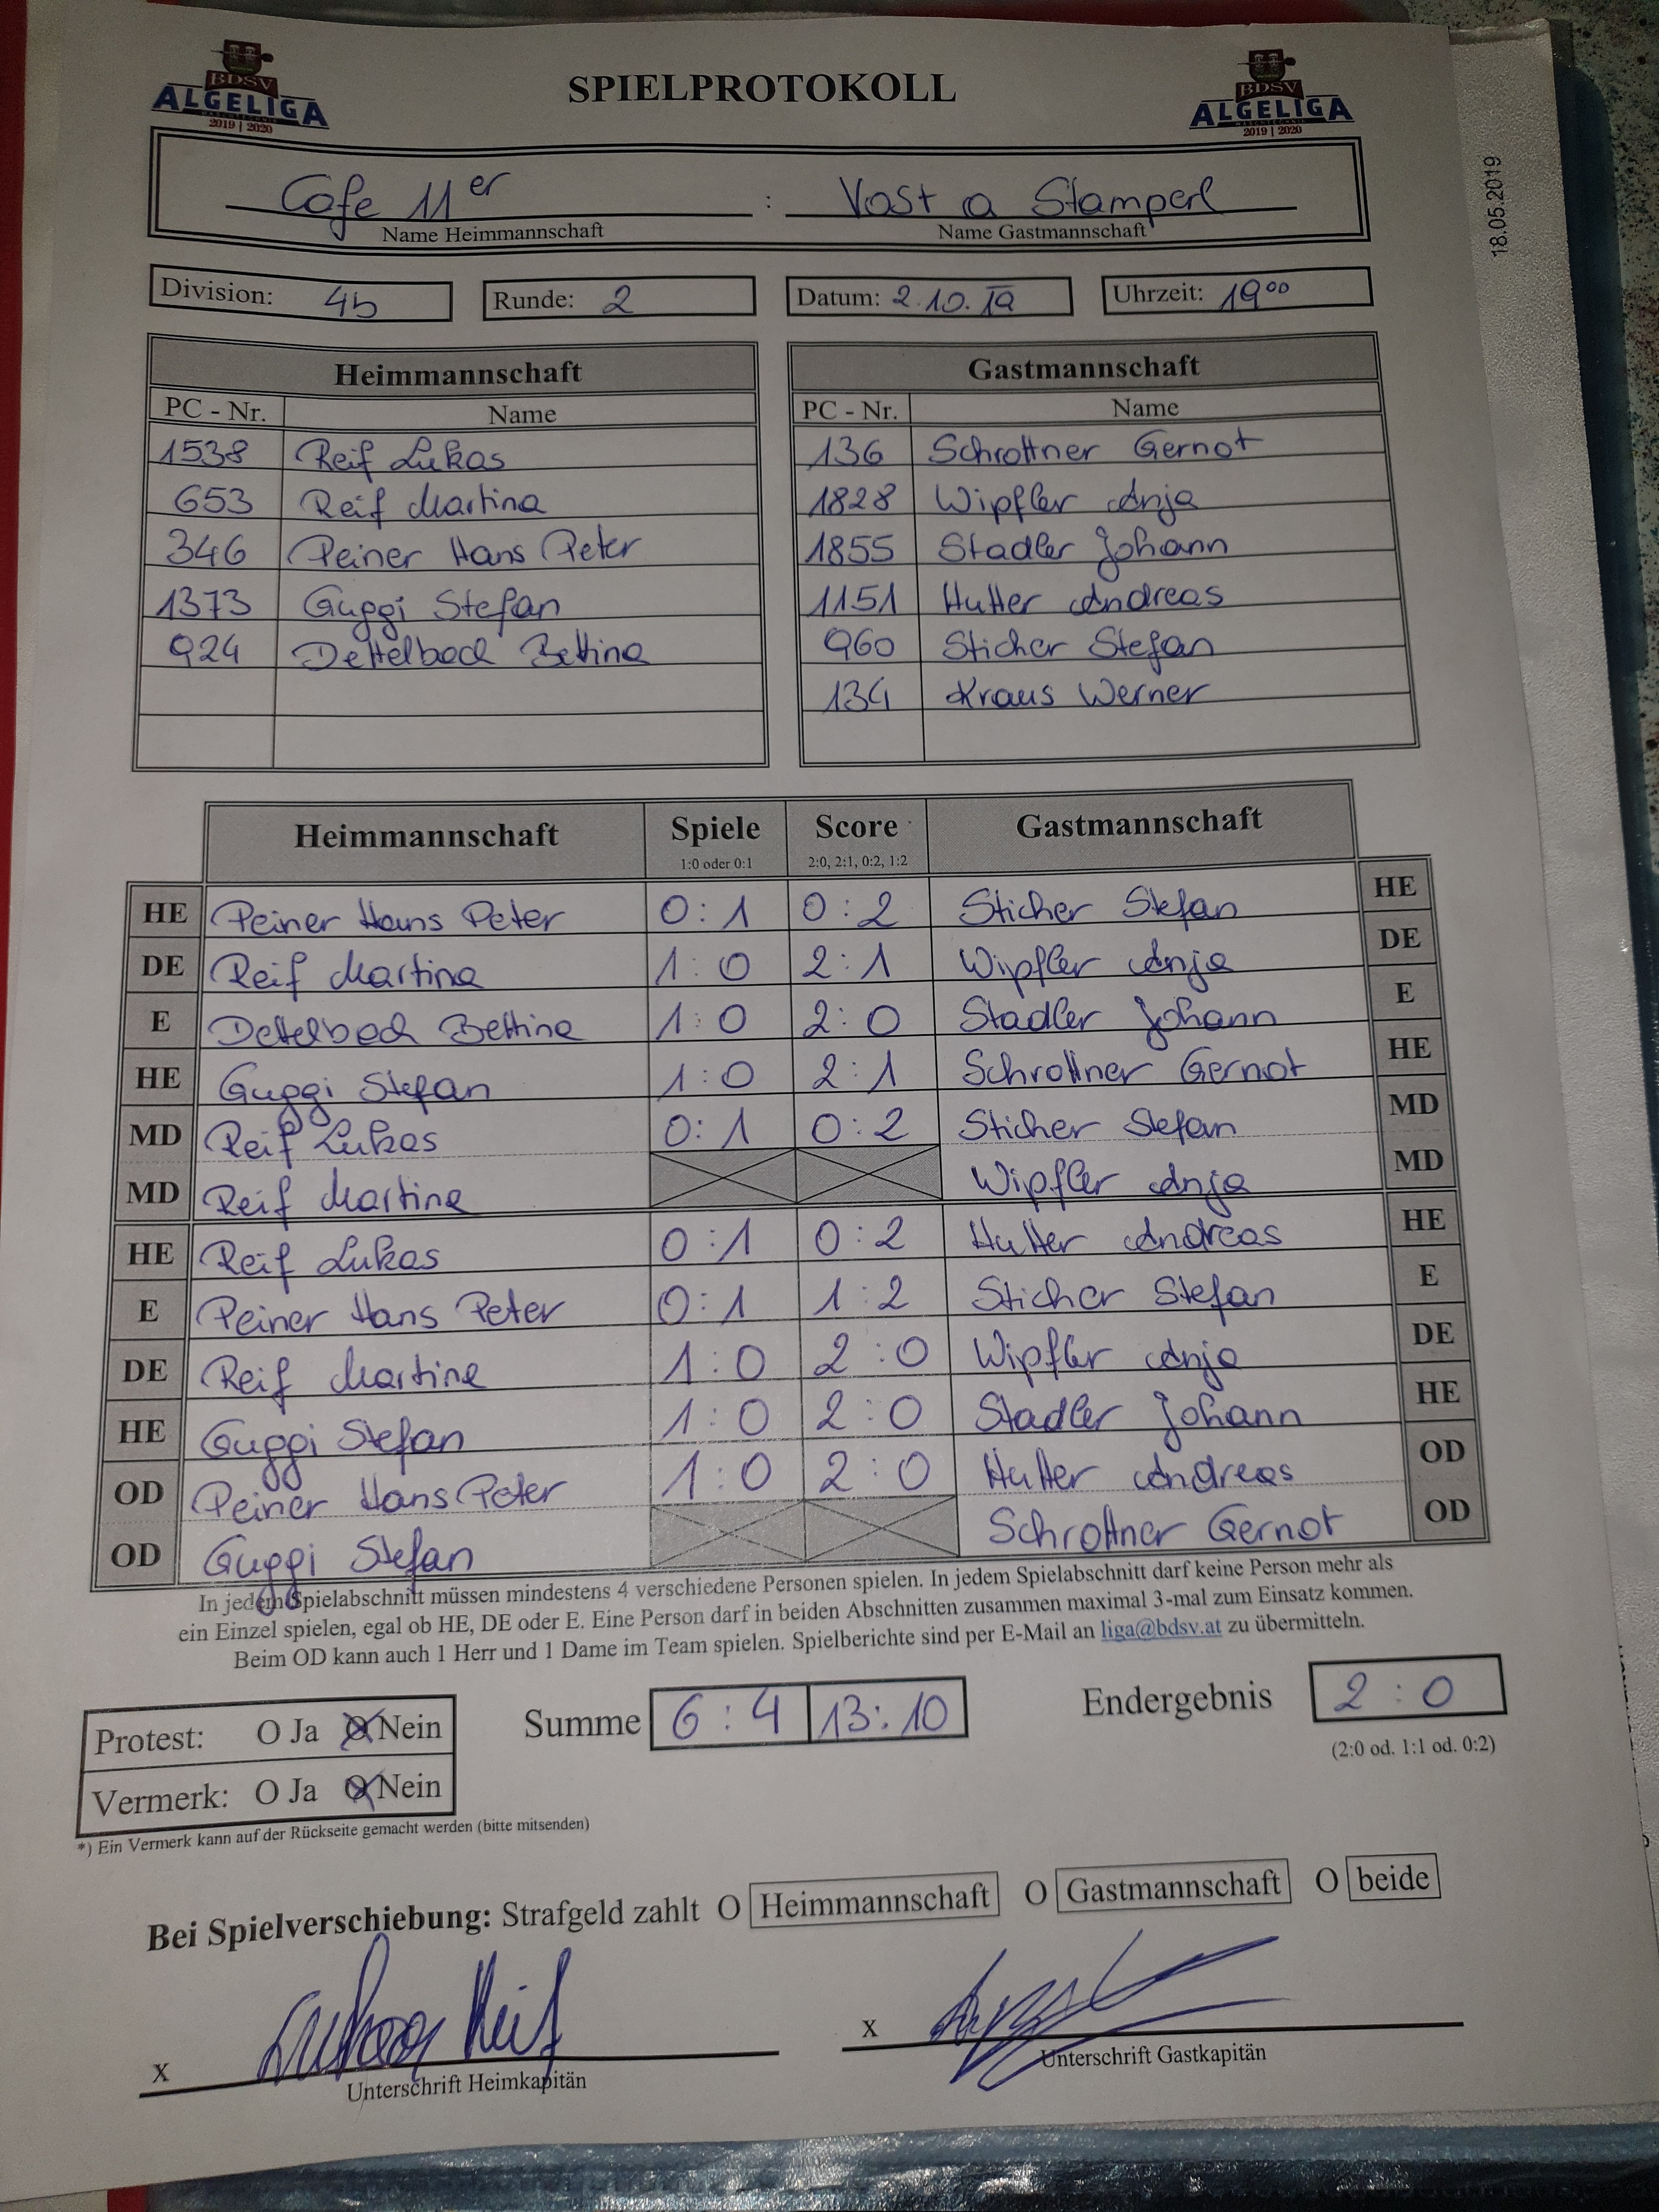 BDSV
ALGELIGA
2019 | 2020
SPIELPROTOKOLL
BDSV
ALGELIGA
2019 | 2020
18.05.2019
Cafe 11er : Vast a Stamperl
Name Heimmannschaft Name Gastmannschaft
Division: 4b Runde: 2 Datum: 2.10.19 Uhrzeit: 19 00
Heimmannschaft Gastmannschaft
PC - Nr. Name PC - Nr. Name
1538 Reif Lukas 136 Schrottner Gernot
653 Reif Martina 1828 Wipfler Anja
346 Peiner Hans Peter 1855 Stadler Johann
1373 Guggi Stefan 1151 Hutter Andreas
924 Dettelbach Bettina 960 Sticher Stefan
134 Kraus Werner
Heimmannschaft Spiele Score Gastmannschaft
1:0 oder 0:1 2:0, 2:1, 0:2, 1:2
HE Peiner Hans Peter 0:1 0:2 Sticher Stefan HE
DE Reif Martina 1:0 2:1 Wipfler Anja DE
E Dettelbach Bettina 1:0 2:0 Stadler Johann E
HE Guggi Stefan 1:0 2:1 Schrottner Gernot HE
MD Reif Lukas 0:1 0:2 Sticher Stefan MD
MD Reif Martina Wipfler Anja MD
HE Reif Lukas 0:1 0:2 Hutter Andreas HE
E Peiner Hans Peter 0:1 1:2 Sticher Stefan E
DE Reif Martina 1:0 2:0 Wipfler Anja DE
HE Guggi Stefan 1:0 2:0 Stadler Johann HE
OD Peiner Hans Peter 1:0 2:0 Hutter Andreas OD
OD Guggi Stefan Schrottner Gernot OD
In jedem Spielabschnitt müssen mindestens 4 verschiedene Personen spielen. In jedem Spielabschnitt darf keine Person mehr als
ein Einzel spielen, egal ob HE, DE oder E. Eine Person darf in beiden Abschnitten zusammen maximal 3-mal zum Einsatz kommen.
Beim OD kann auch 1 Herr und 1 Dame im Team spielen. Spielberichte sind per E-Mail an liga@bdsv.at zu übermitteln.
Protest: O Ja O Nein Summe 6 : 4 13:10 Endergebnis 2 : 0
(2:0 od. 1:1 od. 0:2)
Vermerk: O Ja O Nein
*) Ein Vermerk kann auf der Rückseite gemacht werden (bitte mitsenden)
Bei Spielverschiebung: Strafgeld zahlt O Heimmannschaft O Gastmannschaft O beide
x Lukas Reif x
Unterschrift Heimkapitän Unterschrift Gastkapitän